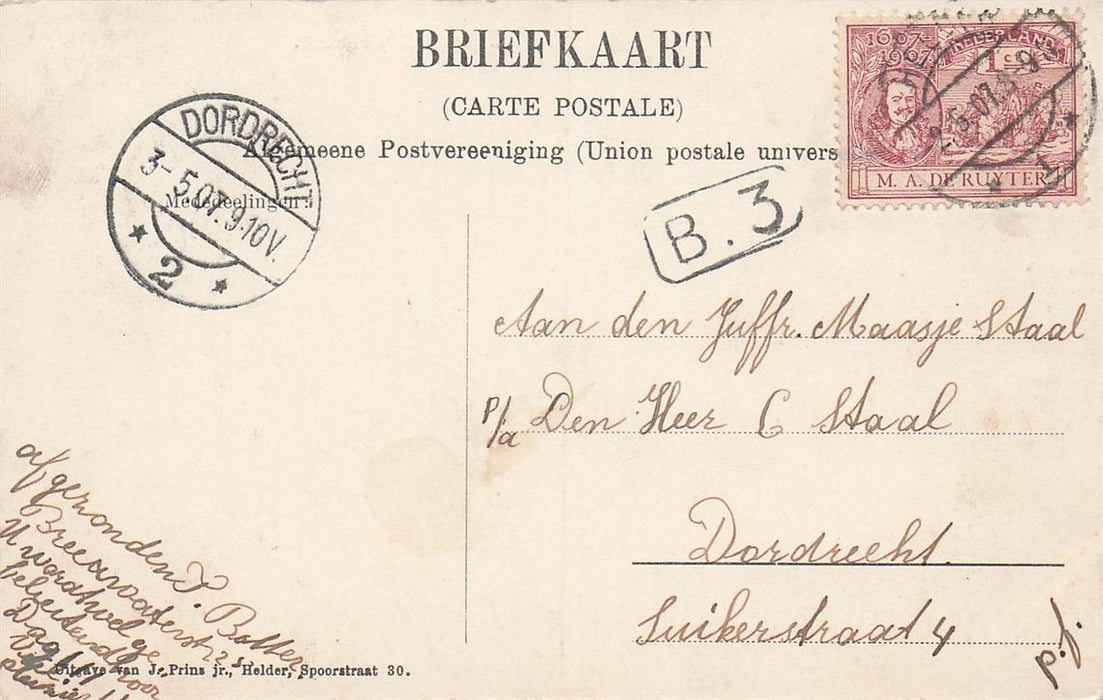 BRIEFKAART
(CARTE POSTALE)
Algemeene Postvereeniging (Union postale univers
Mededeelingen:
DORDRECHT
3-5.07.9-10V.
2
1607-
1907
NEDERLAND
1 c
M. A. DE RUYTER
5.07.8-9
1
B.3
Aan den Juffr. Maasje Staal
p/a Den Heer C Staal
Dordrecht.
Suikerstraat 4
p.f.
afgezonden J. Bakker
Breewaterstr
U wordt wel ge
feliciteerd door
Uitgave van J. Prins jr., Helder, Spoorstraat 30.